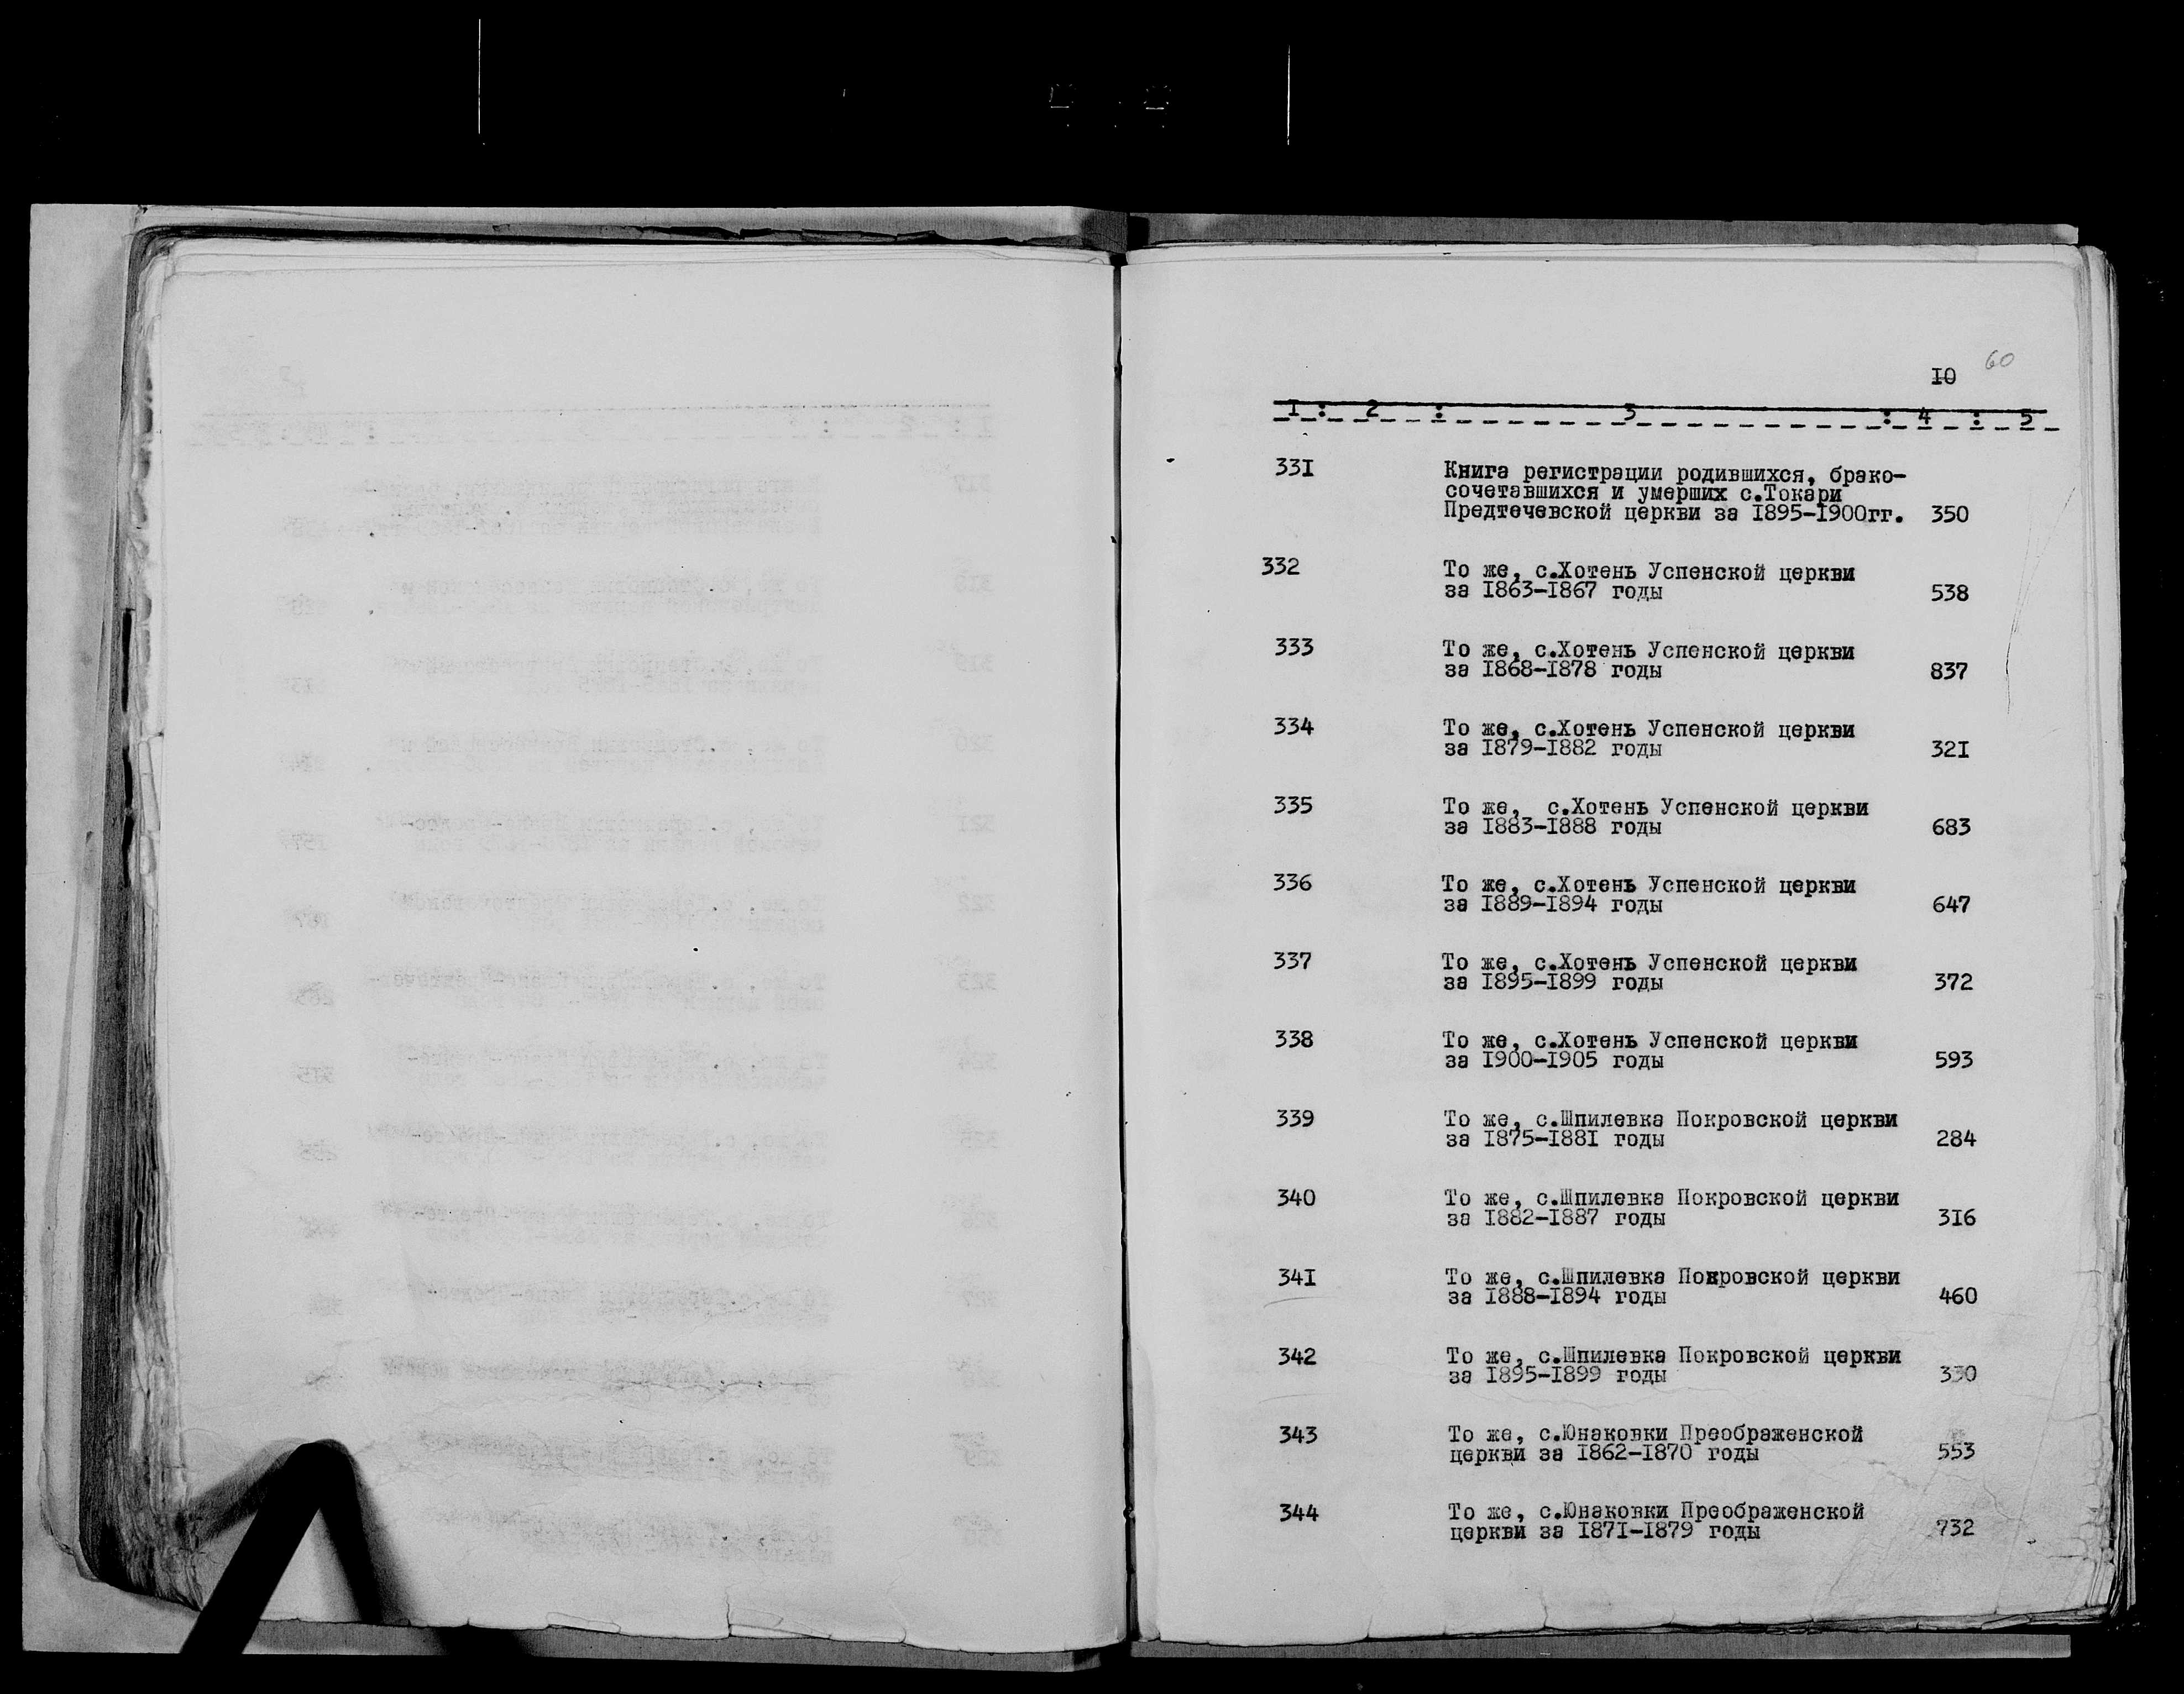 60
10
1 : 2 : 3 : 4 : 5
331 Книга регистрации родившихся, брако-
сочетавшихся и умерших с.Токари
Предтечевской церкви за 1895-1900гг. 350
332 То же, с.Хотень Успенской церкви
за 1863-1867 годы 538
333 То же, с.Хотень Успенской церкви
за 1868-1878 годы 837
334 То же, с.Хотень Успенской церкви
за 1879-1882 годы 321
335 То же, с.Хотень Успенской церкви
за 1883-1888 годы 683
336 То же, с.Хотень Успенской церкви
за 1889-1894 годы 647
337 То же, с.Хотень Успенской церкви
за 1895-1899 годы 372
338 То же, с.Хотень Успенской церкви
за 1900-1905 годы 593
339 То же, с.Шпилевка Покровской церкви
за 1875-1881 годы 284
340 То же, с.Шпилевка Покровской церкви
за 1882-1887 годы 316
341 То же, с.Шпилевка Покровской церкви
за 1888-1894 годы 460
342 То же, с.Шпилевка Покровской церкви
за 1895-1899 годы 330
343 То же, с.Юнаковки Преображенской
церкви за 1862-1870 годы 553
344 То же, с.Юнаковки Преображенской
церкви за 1871-1879 годы 732